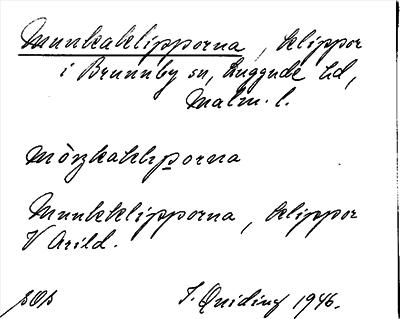 Munkaklipporna, klippor
i Brunnby sn, Luggude hd,
Malm. l.
mòŋkaklıp̲orna
Munkklipporna, klippor
V Arild.
sOs J. Qviding 1946.